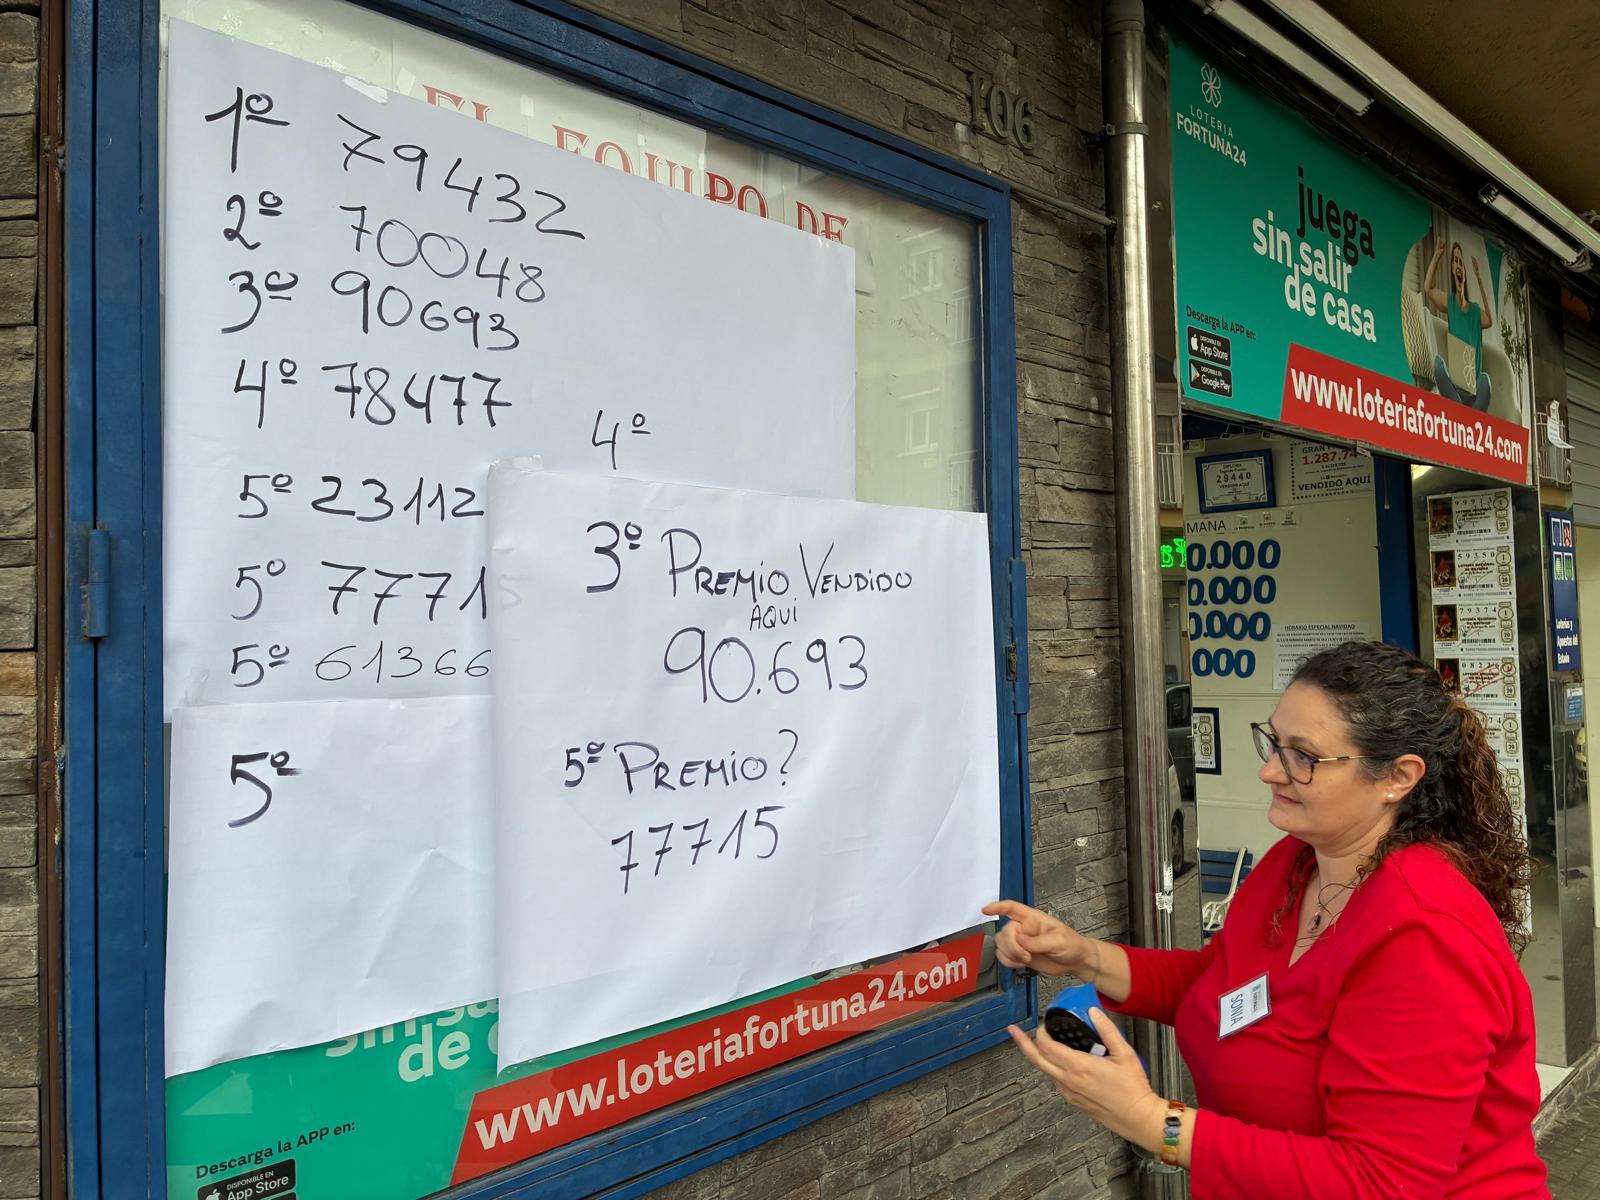 EL EQUIPO DE
1º 79432
2º 70048
3º 90693
4º 78477
4º
5º 23112
5º 77715
5º 61366
5º
3º PREMIO VENDIDO
AQUÍ
90.693
5º PREMIO?
77715
de
www.loteriafortuna24.com
Descarga la APP en:
DISPONIBLE EN
App Store
106
LOTERIA
FORTUNA24
juega
sin salir
de casa
Descarga la APP en:
App Store
Google Play
www.loteriafortuna24.com
29440
VENDIDO AQUÍ
GRAN
1.287.74
VENDIDO AQUÍ
MANA
0.000
0.000
0.000
000
HORARIO ESPECIAL NAVIDAD
99913
59350
79374
Loterías y
Apuestas del
Estado
SONIA